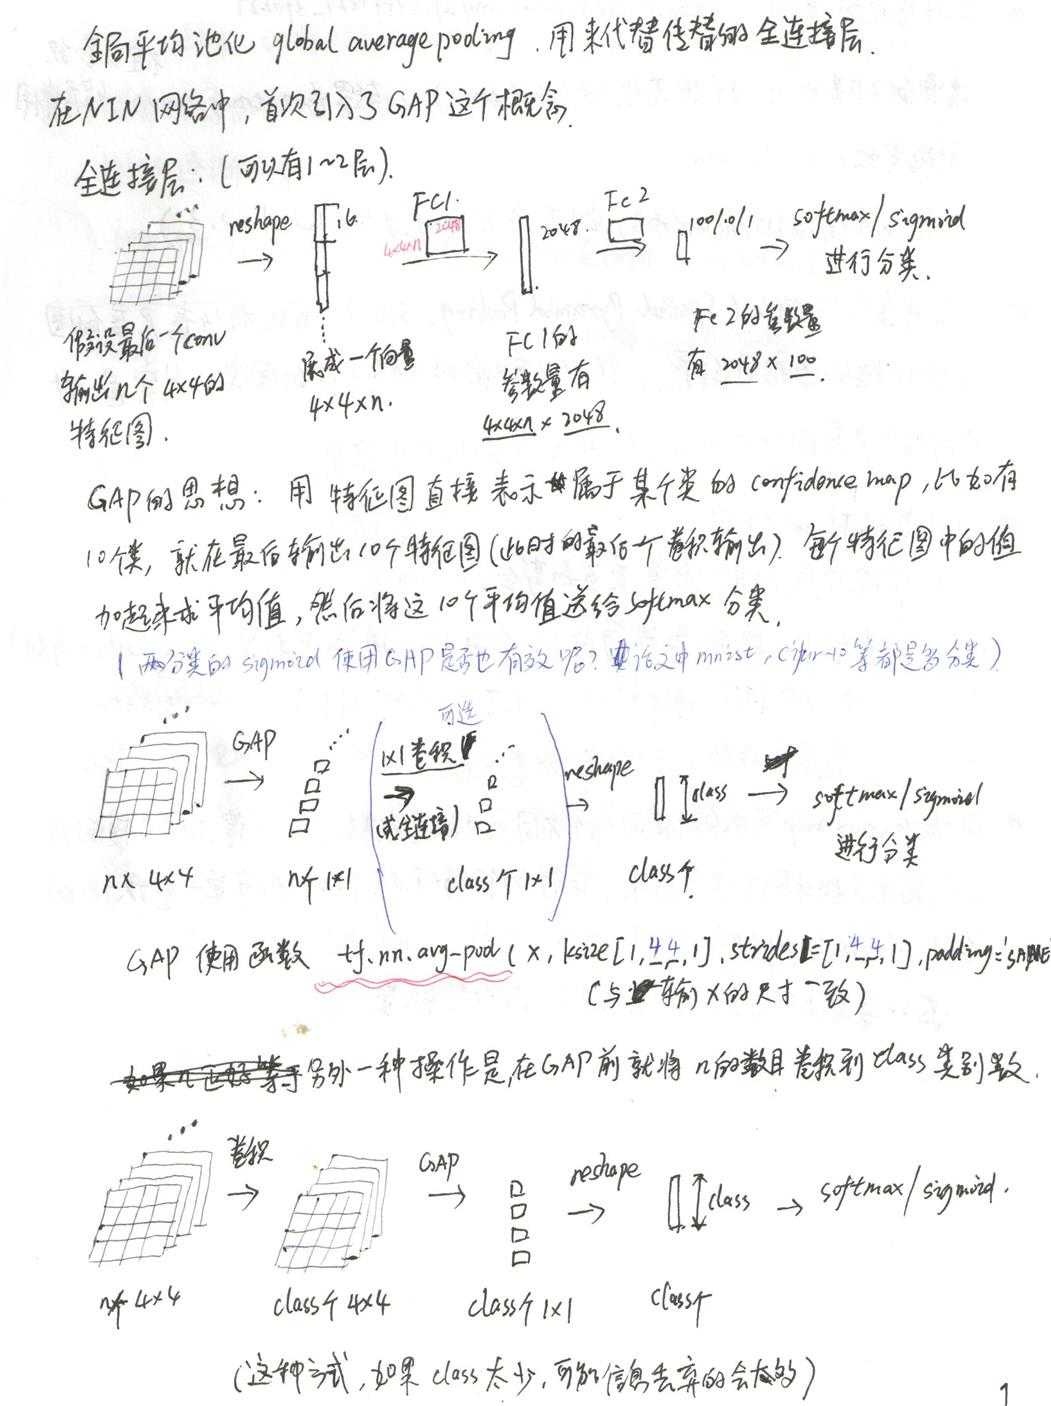 全局平均池化 global average pooling. 用来代替传替的全连接层.
在NIN网络中, 首次引入了GAP这个概念.
全连接层: (可以有1~2层).
reshape
16
FC1.
4x4xn
2048
2048.
Fc2
100/10/1
softmax/sigmoid
进行分类.
假设最后一个conv
输出n个 4x4的
特征图.
展成一个向量
4x4xn.
FC1的
参数量有
4x4xn x 2048.
Fc2的参数量
有 2048 x 100.
GAP的思想: 用 特征图直接表示属于某个类的confidence map, 比如有
10个类, 就在最后输出10个特征图(此时的最后一个卷积输出). 每个特征图中的值
加起来求平均值, 然后将这10个平均值送给softmax 分类.
(两分类的sigmoid 使用GAP是否也有效呢? 论文中mnist, cifar-10等都是多分类)
可选
GAP
1x1卷积
(或全连接)
reshape
class
softmax/sigmoid
进行分类
nx 4x4
n个 1x1
class个 1x1
class个
GAP 使用函数 tf.nn.avg-pool(x, ksize[1,4,4,1], strides=[1,4,4,1], padding='SAME
(与输入X的尺寸一致)
另外一种操作是,在GAP前就将n的数目卷积到class类别数.
卷积
GAP
reshape
class
softmax/sigmoid.
n个 4x4
class个 4x4
class个 1x1
class个
(这种方式, 如果class太少, 可能信息丢弃的会太多)
1